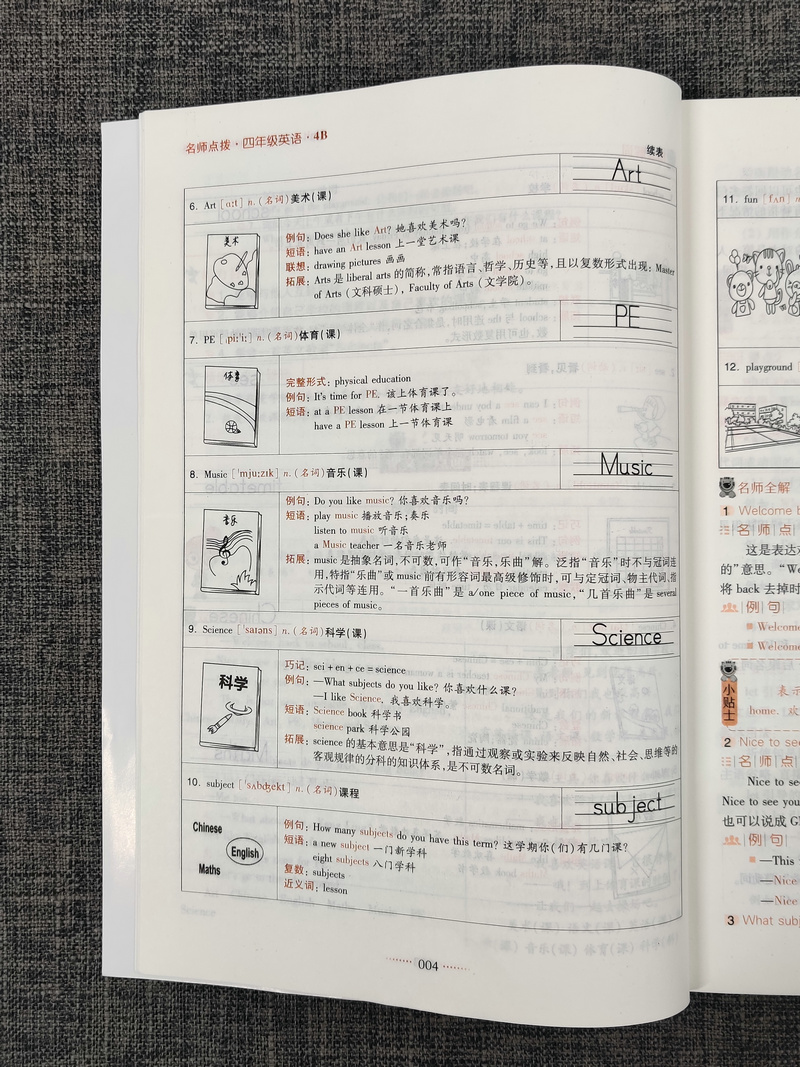 名师点拨·四年级英语·4B
续表
6. Art [ɑːt] n.(名词)美术(课)
Art
美术
例句: Does she like Art? 她喜欢美术吗?
短语: have an Art lesson 上一堂艺术课
联想: drawing pictures 画画
拓展: Arts 是 liberal arts 的简称,常指语言、哲学、历史等,且以复数形式出现: Master
of Arts (文科硕士), Faculty of Arts (文学院)。
7. PE [ˌpiːˈiː] n.(名词)体育(课)
PE
体育
完整形式: physical education
例句: It's time for PE. 该上体育课了。
短语: at a PE lesson 在一节体育课上
have a PE lesson 上一节体育课
8. Music [ˈmjuːzɪk] n.(名词)音乐(课)
Music
音乐
例句: Do you like music? 你喜欢音乐吗?
短语: play music 播放音乐;奏乐
listen to music 听音乐
a Music teacher 一名音乐老师
拓展: music 是抽象名词,不可数,可作“音乐,乐曲”解。泛指“音乐”时不与冠词连
用,特指“乐曲”或 music 前有形容词最高级修饰时,可与定冠词、物主代词、指
示代词等连用。“一首乐曲”是 a/one piece of music,“几首乐曲”是 several
pieces of music。
9. Science [ˈsaɪəns] n.(名词)科学(课)
Science
科学
巧记: sci + en + ce = science
例句: —What subjects do you like? 你喜欢什么课?
—I like Science. 我喜欢科学。
短语: Science book 科学书
science park 科学公园
拓展: science 的基本意思是“科学”,指通过观察或实验来反映自然、社会、思维等的
客观规律的分科的知识体系,是不可数名词。
10. subject [ˈsʌbdʒekt] n.(名词)课程
subject
Chinese
English
Maths
例句: How many subjects do you have this term? 这学期你(们)有几门课?
短语: a new subject 一门新学科
eight subjects 八门学科
复数: subjects
近义词: lesson
004
11. fun [fʌn]
12. playground
名师全解
1 Welcome
名师点
这是表达对
的”意思。“We
将 back 去掉时
例句
Welcome
Welcome
小贴士
表示
home. 欢
2 Nice to see
名师点
Nice to see
Nice to see you
也可以说成 G
例句
—This
—Nice
—Nice
3 What subj